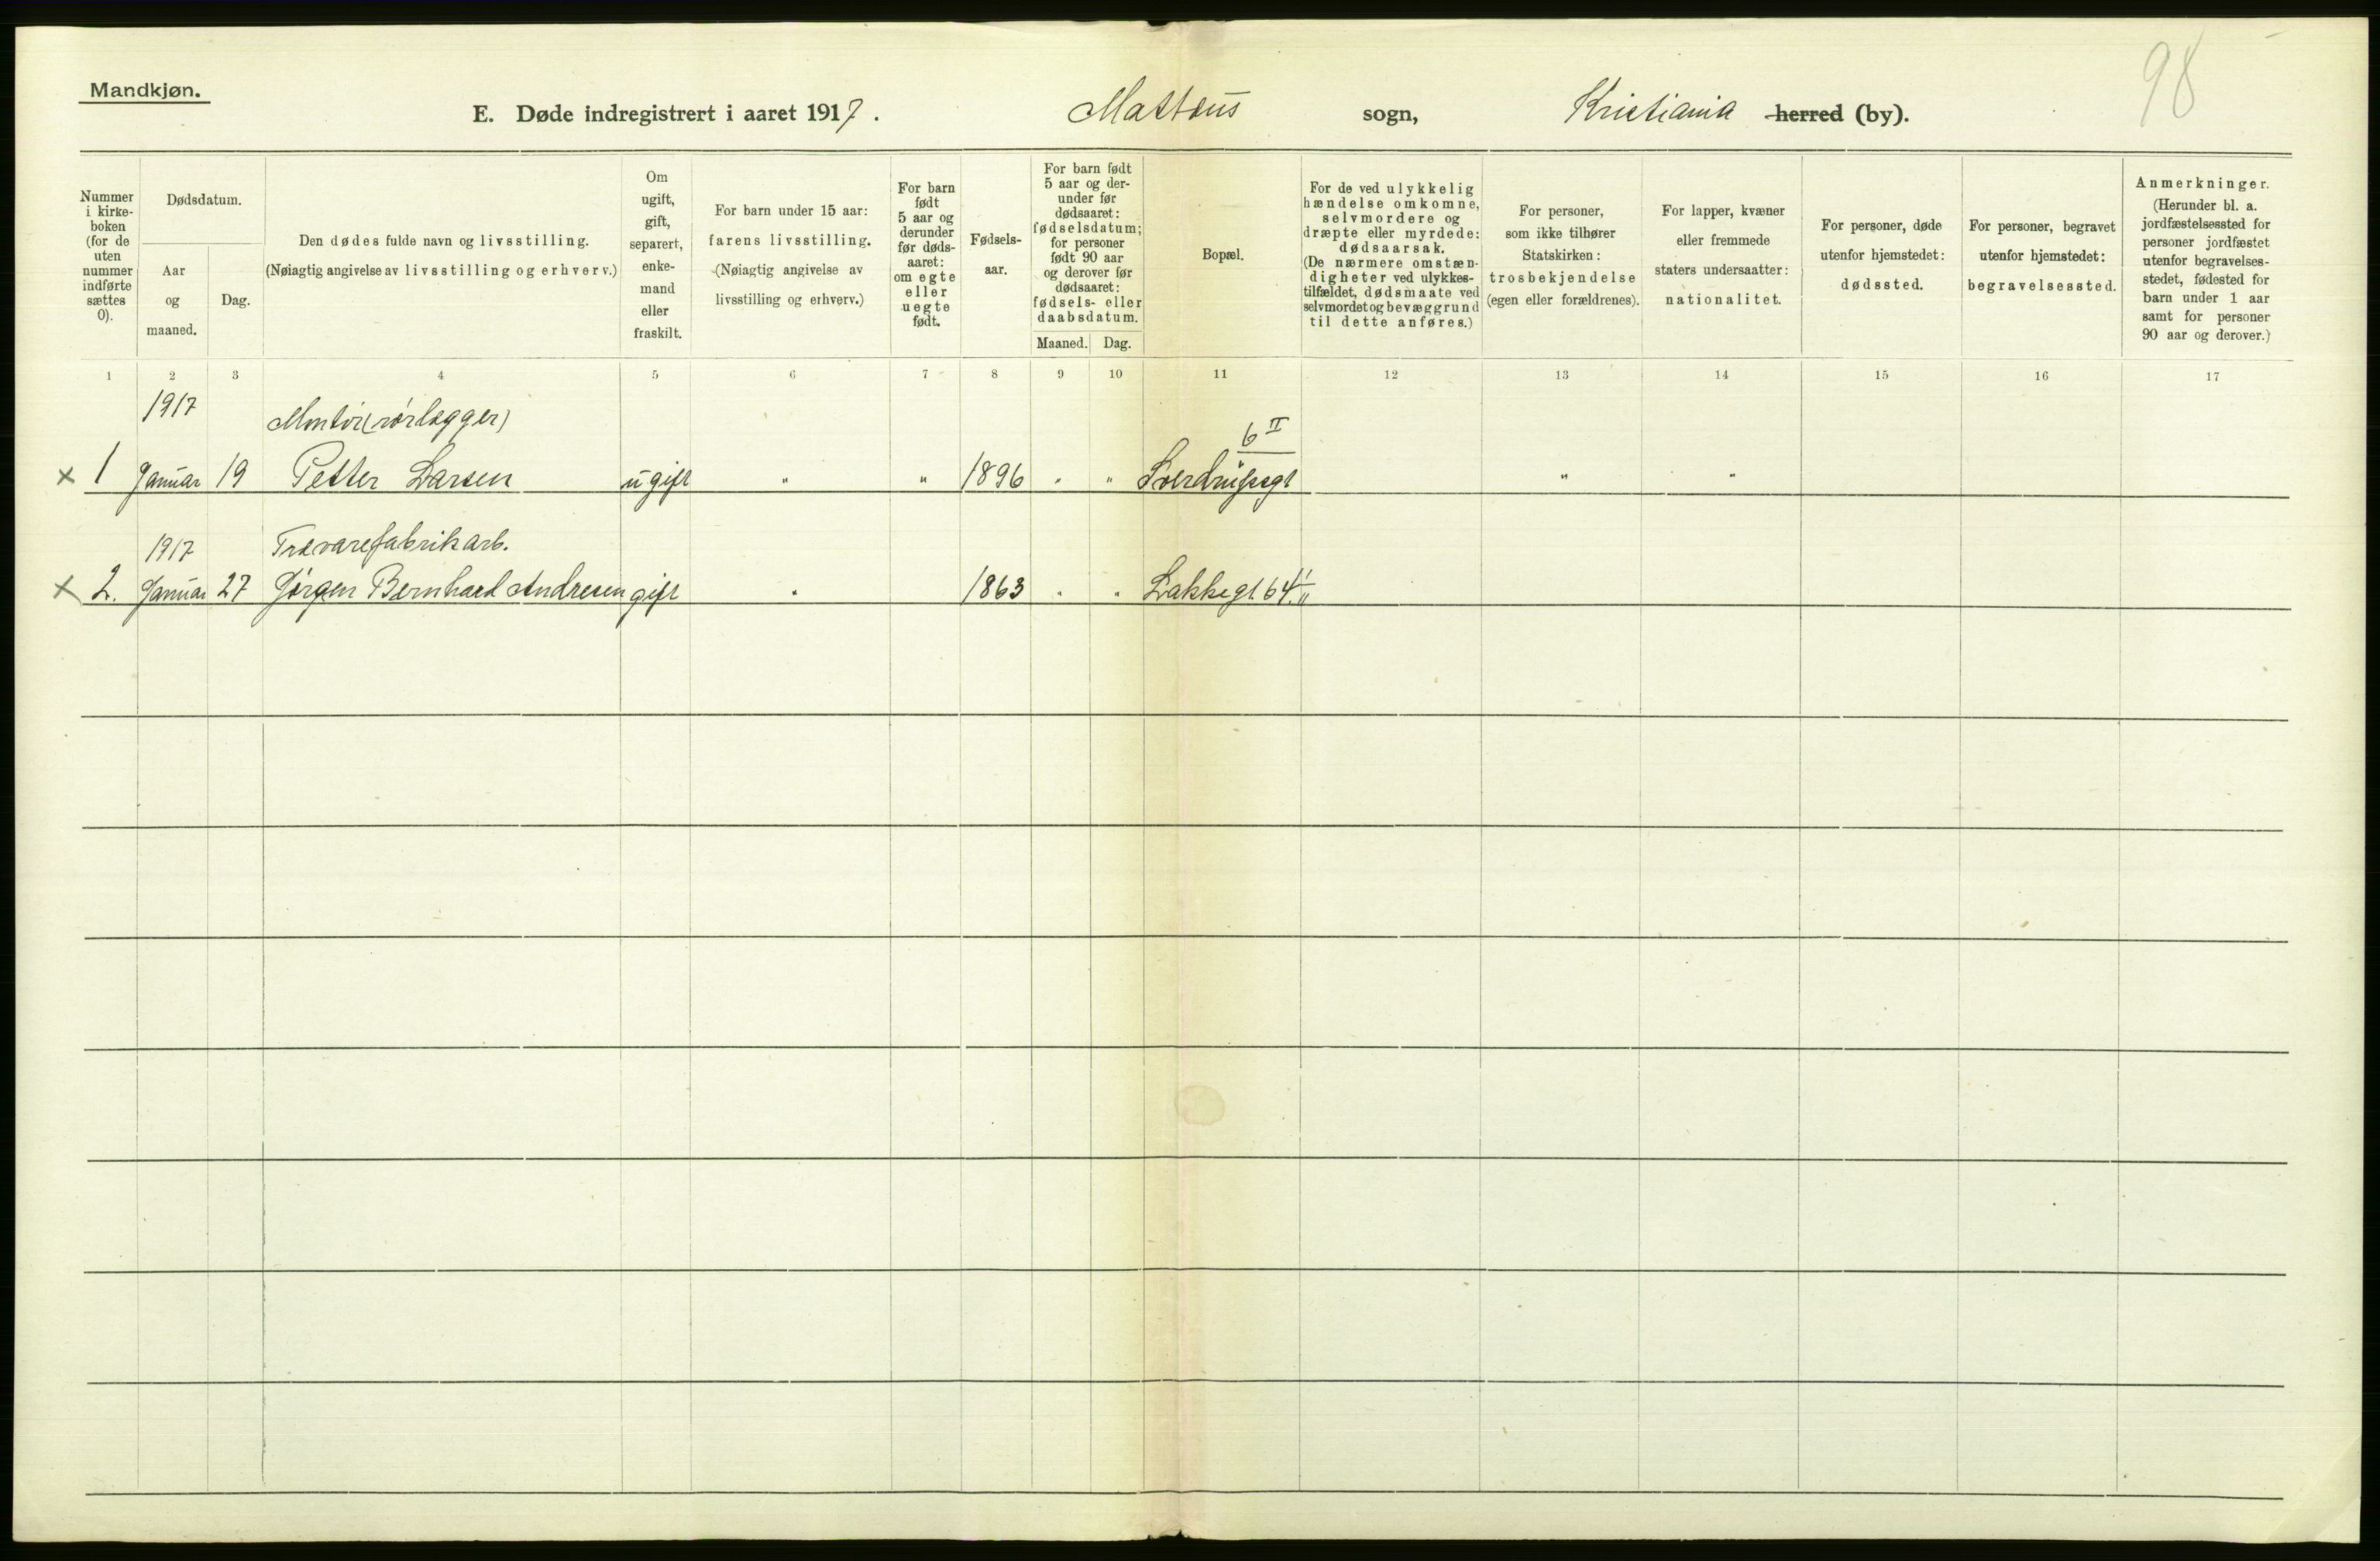 Mandkjøn.
98
E. Døde indregistrert i aaret 1917. Mattæus sogn, Kristiania herred (by).
Nummer i kirke- boken (for de uten nummer indførte sættes 0).
Dødsdatum.
Aar og maaned.
Dag.
Den dødes fulde navn og livsstilling.
(Nøiagtig angivelse av livsstilling og erhverv.)
Om ugift, gift, separert, enke- mand eller fraskilt.
For barn under 15 aar: farens livsstilling. (Nøiagtig angivelse av livsstilling og erhverv.)
For barn født 5 aar og derunder før døds- aaret: om egte eller uegte født.
Fødsels- aar.
For barn født 5 aar og der- under før dødsaaret: fødselsdatum; for personer født 90 aar og derover før dødsaaret: fødsels- eller daabsdatum.
Maaned. Dag.
Bopæl.
For de ved ulykkelig hændelse omkomne, selvmordere og dræpte eller myrdede: dødsaarsak. (De nærmere omstæn- digheter ved ulykkes- tilfældet, dødsmaate ved selvmordet og bevæggrund til dette anføres.)
For personer, som ikke tilhører Statskirken: trosbekjendelse (egen eller forældrenes).
For lapper, kvæner eller fremmede staters undersaatter: nationalitet.
For personer, døde utenfor hjemstedet: dødssted.
For personer, begravet utenfor hjemstedet: begravelsessted.
Anmerkninger. (Herunder bl. a. jordfæstelsessted for personer jordfæstet utenfor begravelses- stedet, fødested for barn under 1 aar samt for personer 90 aar og derover.)
1 2 3 4 5 6 7 8 9 10 11 12 13 14 15 16 17
1917 Montør (rørlægger) 6 II
× 1 Januar 19 Petter Larsen ugift " " 1896 " " Sverdrupsgt " "
1917 Trævarefabrikarb.
× 2. Januar 27 Jørgen Bernhard Andresen gift " 1863 " " Lakkegt. 64